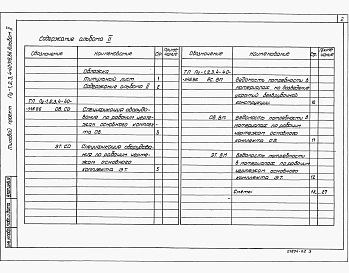 2
Содержание альбома II
Обозначение
Наименование
Стр.
Приме-
чание
Обложка
Титульный лист 1
Содержание альбома II 2
ТП Лу-1,2,3,4-40-
ОВ.СО Спецификация оборудо-
вания по рабочим черте-
жам основного комплек-
та ОВ. 3
ЭТ.СО Спецификация оборудова-
ния по рабочим черте-
жам основного
комплекта ЭТ. 5
Обозначение
Наименование
Стр.
Приме-
чание
ТП Лу-1,2,3,4-40-
ВС.ВМ Ведомость потребности в
материалах на возведение
конструкции
ОВ.ВМ Ведомость потребности в
материалах по рабочим
чертежам основного
комплекта ОВ. 11
ЭТ.ВМ Ведомость потребности
в материалах по рабочим
чертежам основного
комплекта ЭТ. 12
Сметы
Типовой проект